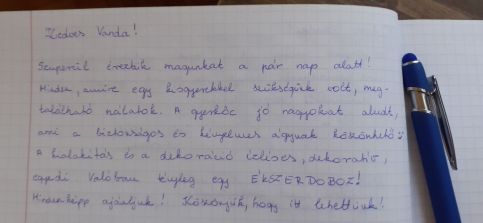 Kedves Vanda!
Szuperül éreztük magunkat a pár nap alatt!
Minden, amire egy kisgyerekkel szükségünk volt, meg-
található nálatok. A gyerkőc jó nagyokat aludt,
ami a biztonságos és kényelmes ágynak köszönhető
A kialakítás és a dekoráció ízléses, dekoratív,
egyedi. Valóban tényleg egy ÉKSZERDOBOZ!
Mindenképp ajánljuk! Köszönjük, hogy itt lehettünk!